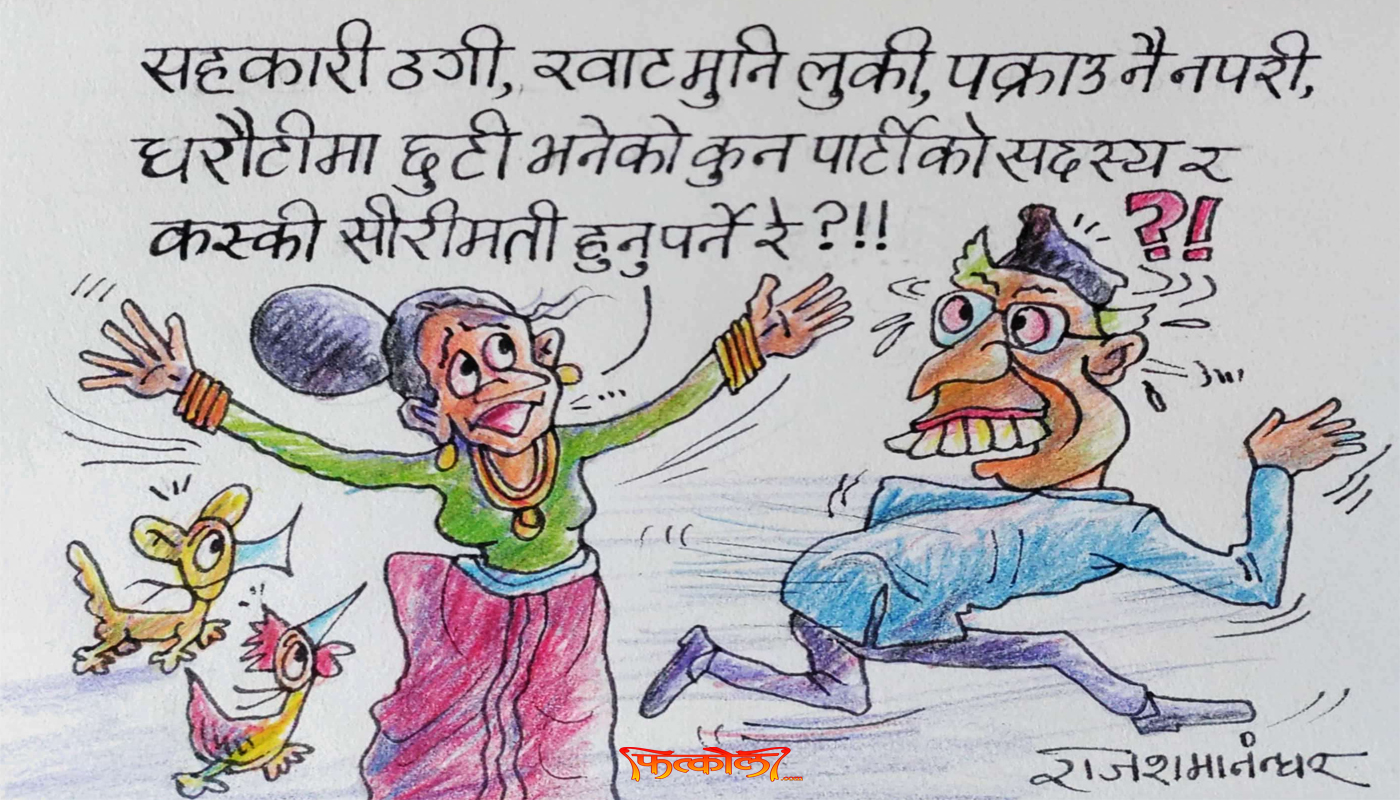 सहकारी ठगी, खाटमुनि लुकी, पक्राउ नै नपरी,
धरौटीमा छुटी भनेको कुन पार्टीको सदस्य र
कस्की सीरीमती हुनुपर्ने रे?!!
?!
फित्कौली.com
राजेशमानन्धर